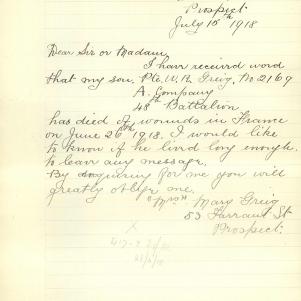 Prospect
July 15th 1918
Dear Sir or Madam,
I have received word
that my son, Pte. W. R. Greig, No 2169
A. Company
48th Battalion
has died of wounds in France
on June 26th 1918. I would like
to know if he lived long enough
to leave any message.
By inquiring for me you will
greatly oblige me.
Mrs Mary Greig
83 Farrant St
Prospect.
X